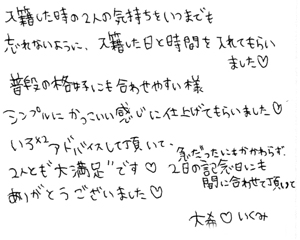 入籍した時の2人の気持ちをいつまでも
忘れないように、入籍した日と時間を入れてもらい
ました♡
普段の格好にも合わせやすい様
シンプルにかっこいい感じに仕上げてもらいました♡
いろ×2アドバイスして頂いて、
2人とも"大満足"です♡
ありがとうございました♡
急だったにもかかわらず、
2日の記念日にも
間に合わせて頂けて
大希♡いくみ